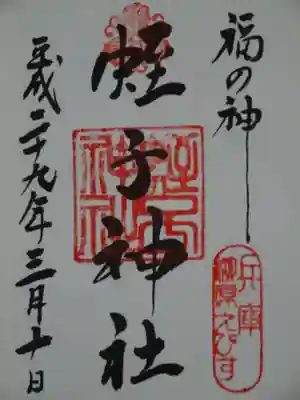 福の神
兵庫
柳原えびす
蛭子神社
平成二十九年三月十日